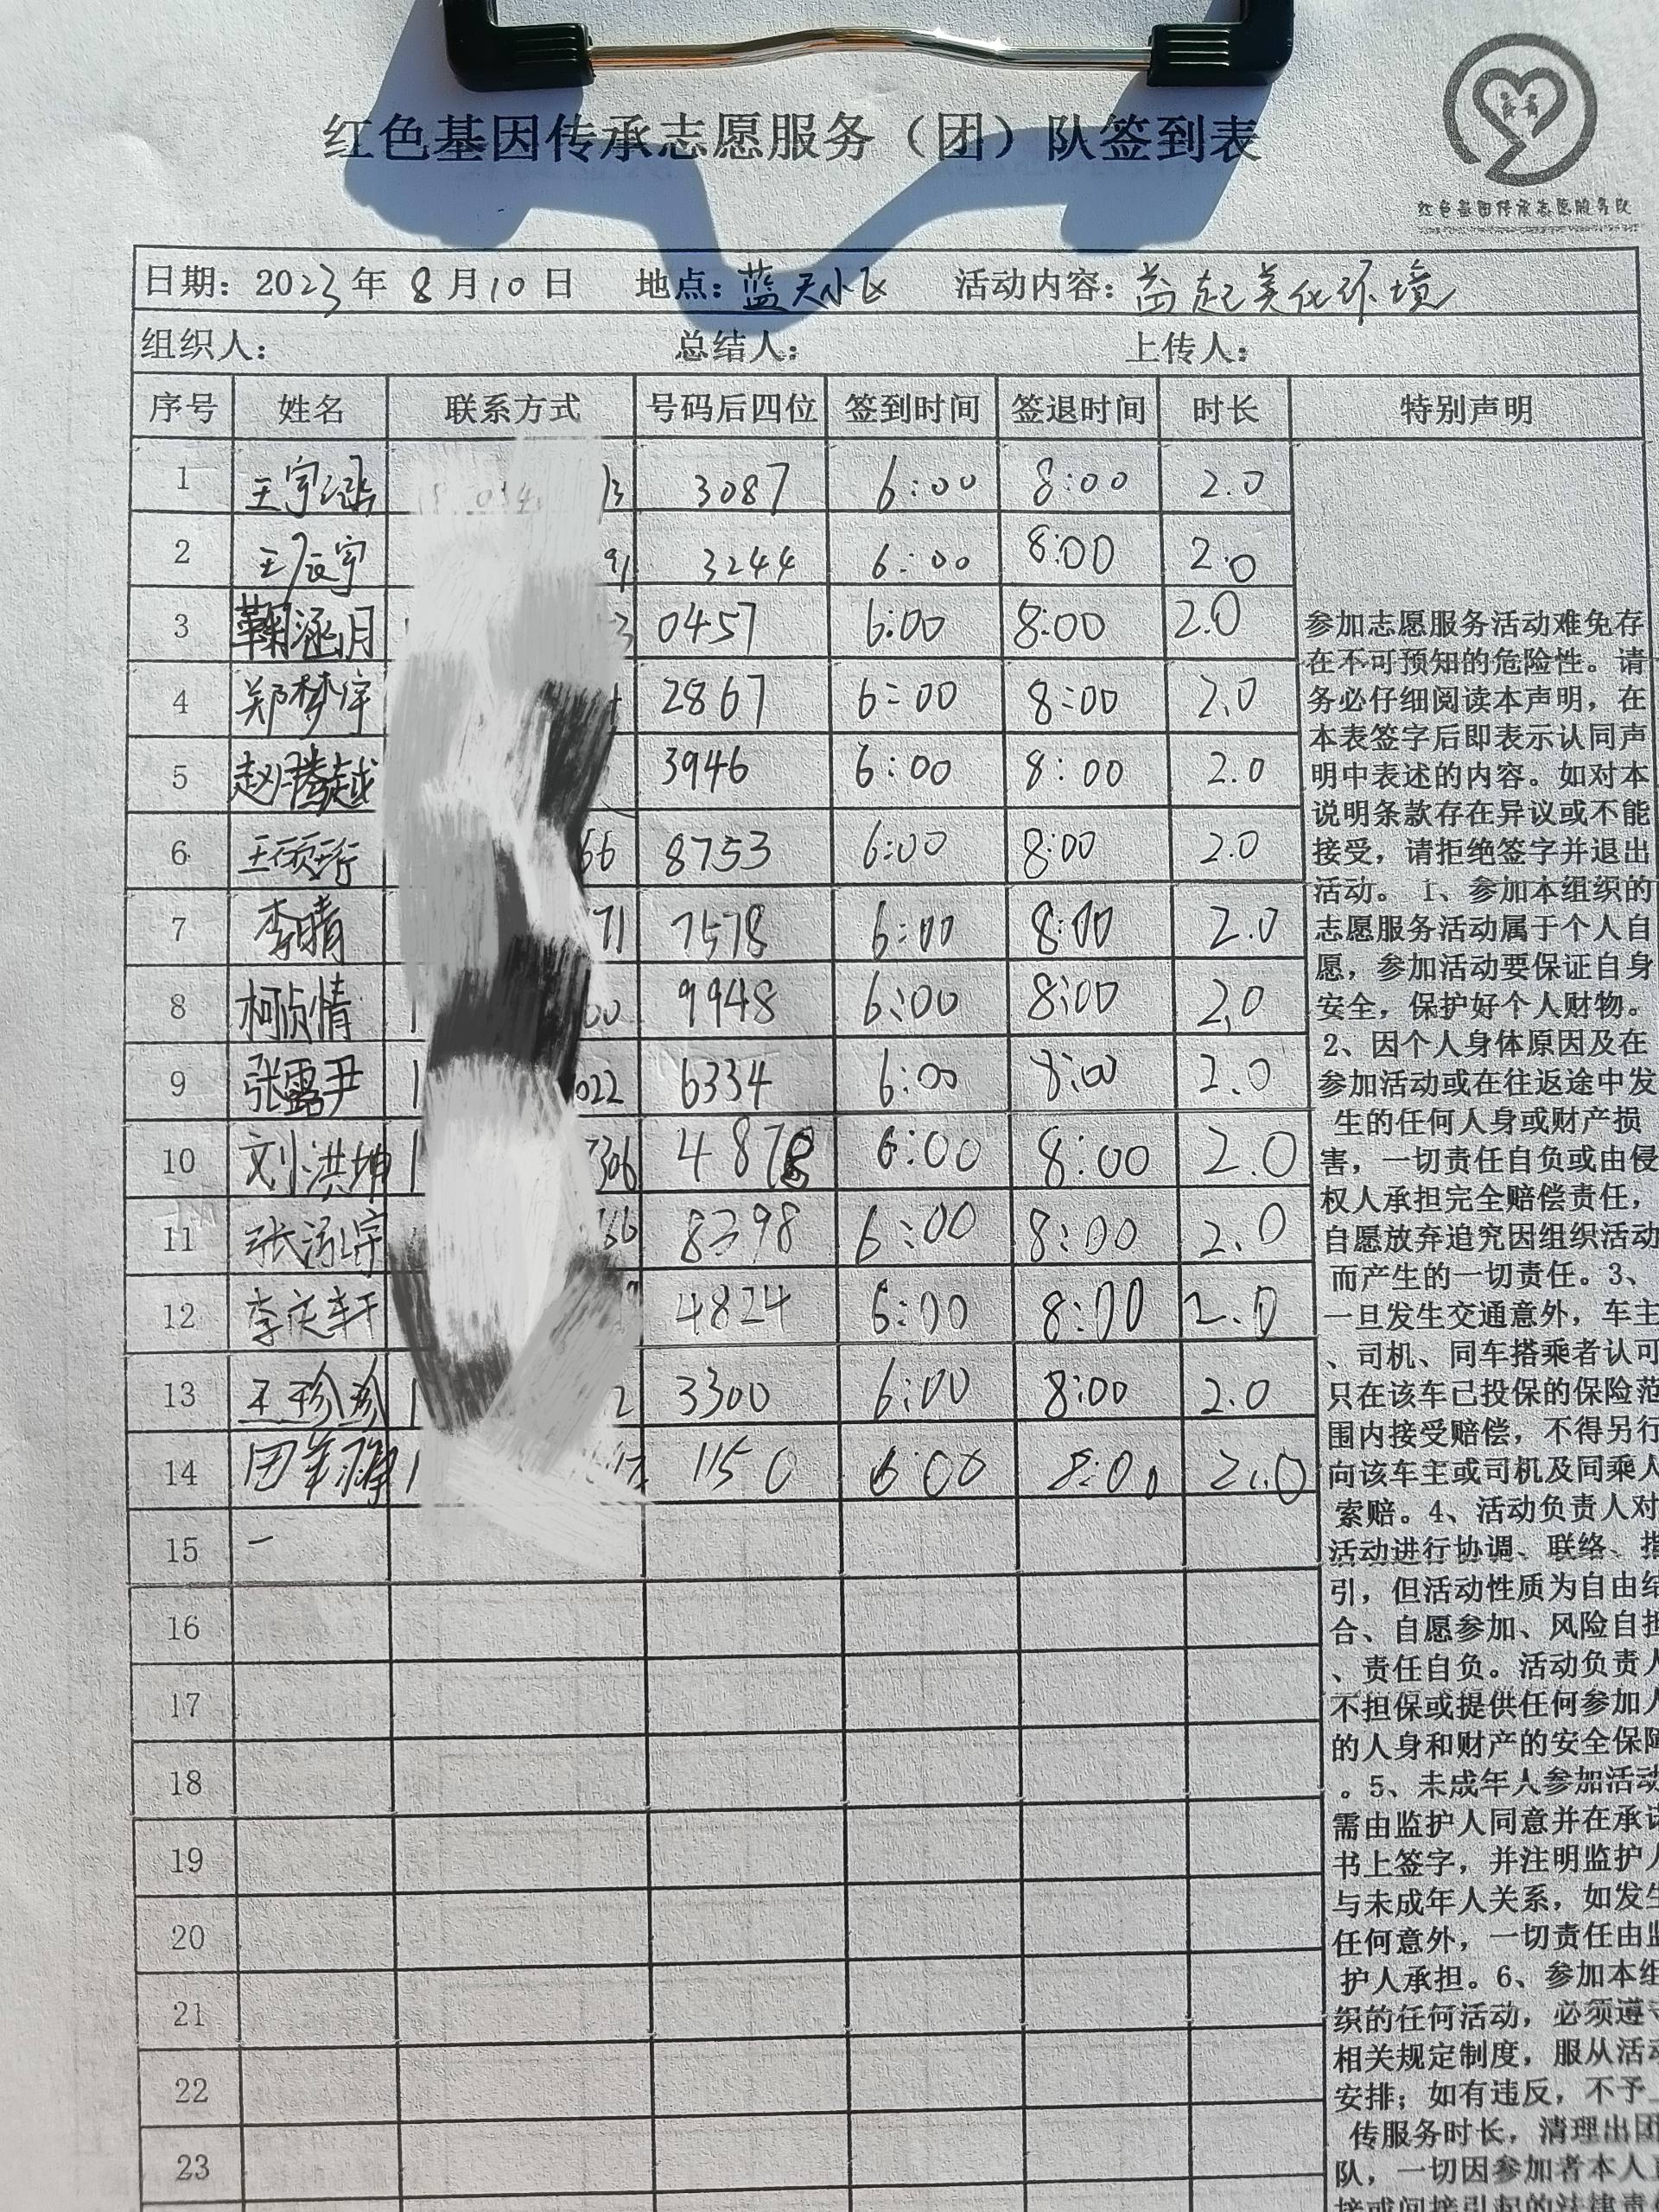 红色基因传承志愿服务（团）队签到表
红色基因传承志愿服务队
日期：2023年 8月10日 地点：蓝天小区 活动内容：益起美化环境
组织人： 总结人： 上传人：
序号 姓名 联系方式 号码后四位 签到时间 签退时间 时长 特别声明
1 王宇涵 13 3087 6:00 8:00 2.0
2 王辰宇 91 3244 6:00 8:00 2.0
3 鞠涵月 3 0457 6:00 8:00 2.0
4 郑梦宇 2867 6:00 8:00 2.0
5 赵腾越 3946 6:00 8:00 2.0
6 王硕珩 66 8753 6:00 8:00 2.0
7 李晴 71 7578 6:00 8:00 2.0
8 柯贞情 1 00 9948 6:00 8:00 2.0
9 张露尹 1 022 6334 6:00 8:00 2.0
10 刘洪坤 1 7306 4878 6:00 8:00 2.0
11 张泓宇 66 8398 6:00 8:00 2.0
12 李庆轩 4824 6:00 8:00 2.0
13 王珍珍 1 2 3300 6:00 8:00 2.0
14 田 1 1150 6:00 8:00 2.0
15 一
16
17
18
19
20
21
22
23
参加志愿服务活动难免存
在不可预知的危险性。请
务必仔细阅读本声明，在
本表签字后即表示认同声
明中表述的内容。如对本
说明条款存在异议或不能
接受，请拒绝签字并退出
活动。1、参加本组织的
志愿服务活动属于个人自
愿，参加活动要保证自身
安全，保护好个人财物。
2、因个人身体原因及在
参加活动或在往返途中发
生的任何人身或财产损
害，一切责任自负或由侵
权人承担完全赔偿责任，
自愿放弃追究因组织活动
而产生的一切责任。3、
一旦发生交通意外，车主
、司机、同车搭乘者认可
只在该车已投保的保险范
围内接受赔偿，不得另行
向该车主或司机及同乘人
索赔。4、活动负责人对
活动进行协调、联络、指
引，但活动性质为自由结
合、自愿参加、风险自担
、责任自负。活动负责人
不担保或提供任何参加人
的人身和财产的安全保障
。5、未成年人参加活动
需由监护人同意并在承诺
书上签字，并注明监护人
与未成年人关系，如发生
任何意外，一切责任由监
护人承担。6、参加本组
织的任何活动，必须遵守
相关规定制度，服从活动
安排；如有违反，不予上
传服务时长，清理出团
队，一切因参加者本人直
接或间接引起的法律责